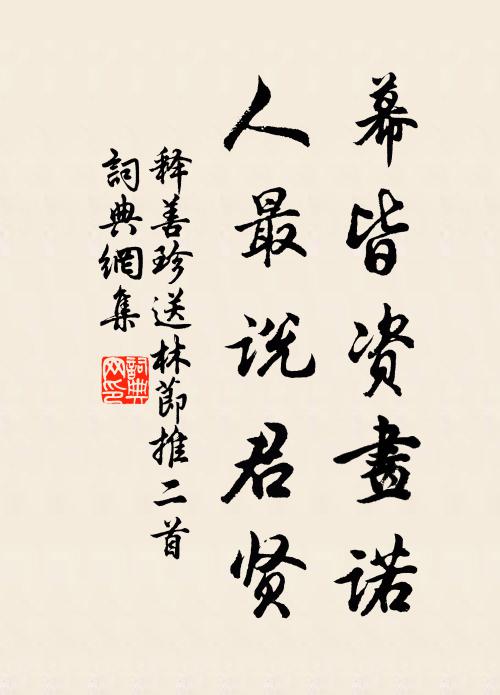 幕皆资畫诺
人最说君贤
释善珍送林節推二首
詞典網集
詞典网印